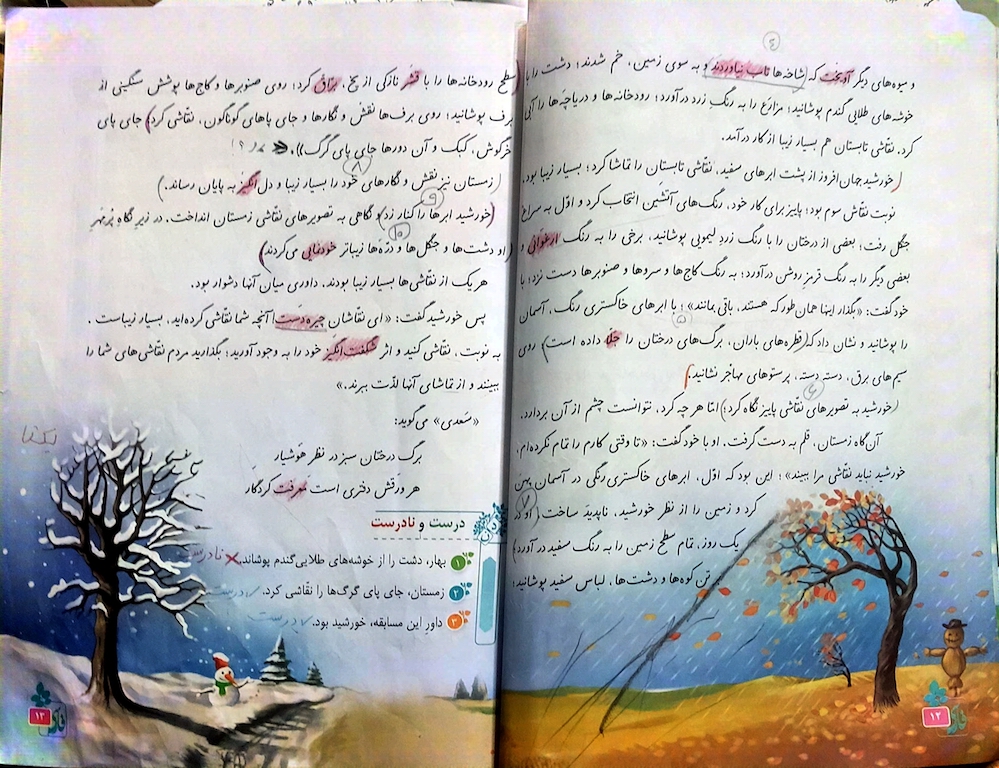 و میوه‌های دیگر آویخت که شاخه‌ها تاب نیاوردند و به سوی زمین، خم شدند؛ دشت را با
خوشه‌های طلایی گندم پوشانید؛ مزارع را به رنگِ زرد درآورد؛ رودخانه‌ها و دریاچه‌ها را آبی
کرد. نقّاشی تابستان هم بسیار زیبا از کار درآمد.
خورشیدِ جهان‌افروز از پشت ابرهای سفید، نقّاشی تابستان را تماشا کرد؛ بسیار زیبا بود.
نوبت نقّاش سوم بود؛ پاییز برای کار خود، رنگ‌های آتشین انتخاب کرد و اوّل به سراغ
جنگل رفت؛ بعضی از درختان را با رنگ زردِ لیمویی پوشانید، برخی را به رنگ ارغوانی و
بعضی دیگر را به رنگ قرمزِ روشن درآورد؛ به رنگ کاج‌ها و سروها و صنوبرها دست نزد؛ با
خود گفت: «بگذار اینها همان طور که هستند، باقی بمانند»؛ با ابرهای خاکستری رنگ، آسمان
را پوشانید و نشان داد که قطره‌های باران، برگ‌های درختان را جلا داده است؛ روی
سیم‌های برق، دسته دسته، پرستوهای مهاجر نشانید.
خورشید به تصویرهای نقّاشی پاییز نگاه کرد؛ امّا هر چه کرد، نتوانست چشم از آن بردارد.
آن‌گاه زمستان، قلم به دست گرفت. او با خود گفت: «تا وقتی کارم را تمام نکرده‌ام،
خورشید نباید نقّاشی مرا ببیند»؛ این بود که اوّل، ابرهای خاکستری رنگی در آسمان پهن
کرد و زمین را از نظر خورشید، ناپدید ساخت. او در
یک روز، تمام سطح زمین را به رنگ سفید درآورد؛
تن کوه‌ها و دشت‌ها، لباس سفید پوشانید؛
۴
۵
۶
۷
۱۲
سطح رودخانه‌ها را با قشر نازکی از یخ، برّاق کرد؛ روی صنوبرها و کاج‌ها پوشش سنگینی از
برف پوشانید؛ روی برف‌ها نقش و نگارها و جای پاهای گوناگون، نقّاشی کرد؛ جای پای
خرگوش، کبک و آن دورها جای پای گرگ.
زمستان نیز نقش و نگارهای خود را بسیار زیبا و دل‌انگیز به پایان رساند.
خورشید ابرها را کنار زد و نگاهی به تصویرهای نقّاشی زمستان انداخت. در زیر نگاهِ پُرمِهرِ
او دشت‌ها و جنگل‌ها و درّه‌ها زیباتر خودنمایی می‌کردند.
هر یک از نقّاشی‌ها بسیار زیبا بودند. داوری میان آنها دشوار بود.
پس خورشید گفت: «ای نقّاشان چیره‌دست! آنچه شما نقّاشی کرده‌اید، بسیار زیباست.
به نوبت، نقّاشی کنید و اثرِ شگفت‌انگیز خود را به وجود آورید؛ بگذارید مردم نقّاشی‌های شما را
ببینند و از تماشای آنها لذّت ببرند.»
«سَعدی» می‌گوید:
برگ درختان سبز در نظر هوشیار
هر ورقش دفتری است معرفت کردگار
۸
۹
۱۰
درست و نادرست
۱ بهار، دشت را از خوشه‌های طلایی گندم پوشاند. نادرست
۲ زمستان، جای پای گرگ‌ها را نقّاشی کرد. درست
۳ داورِ این مسابقه، خورشید بود. درست
یکتا
۱۳